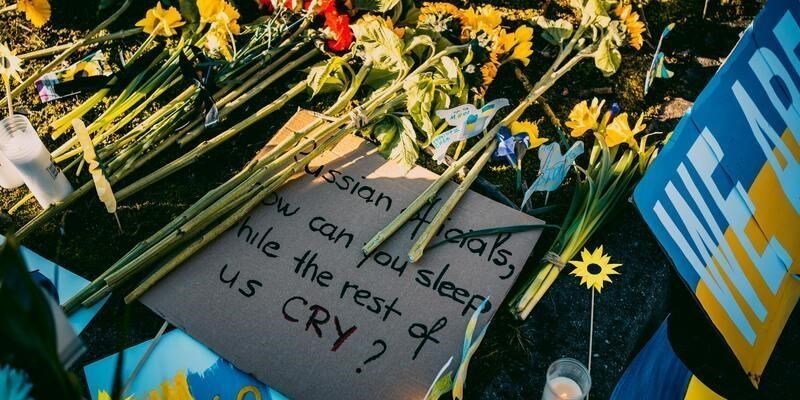 Russian officials,
how can you sleep
while the rest of
us CRY?
WE ARE
WE